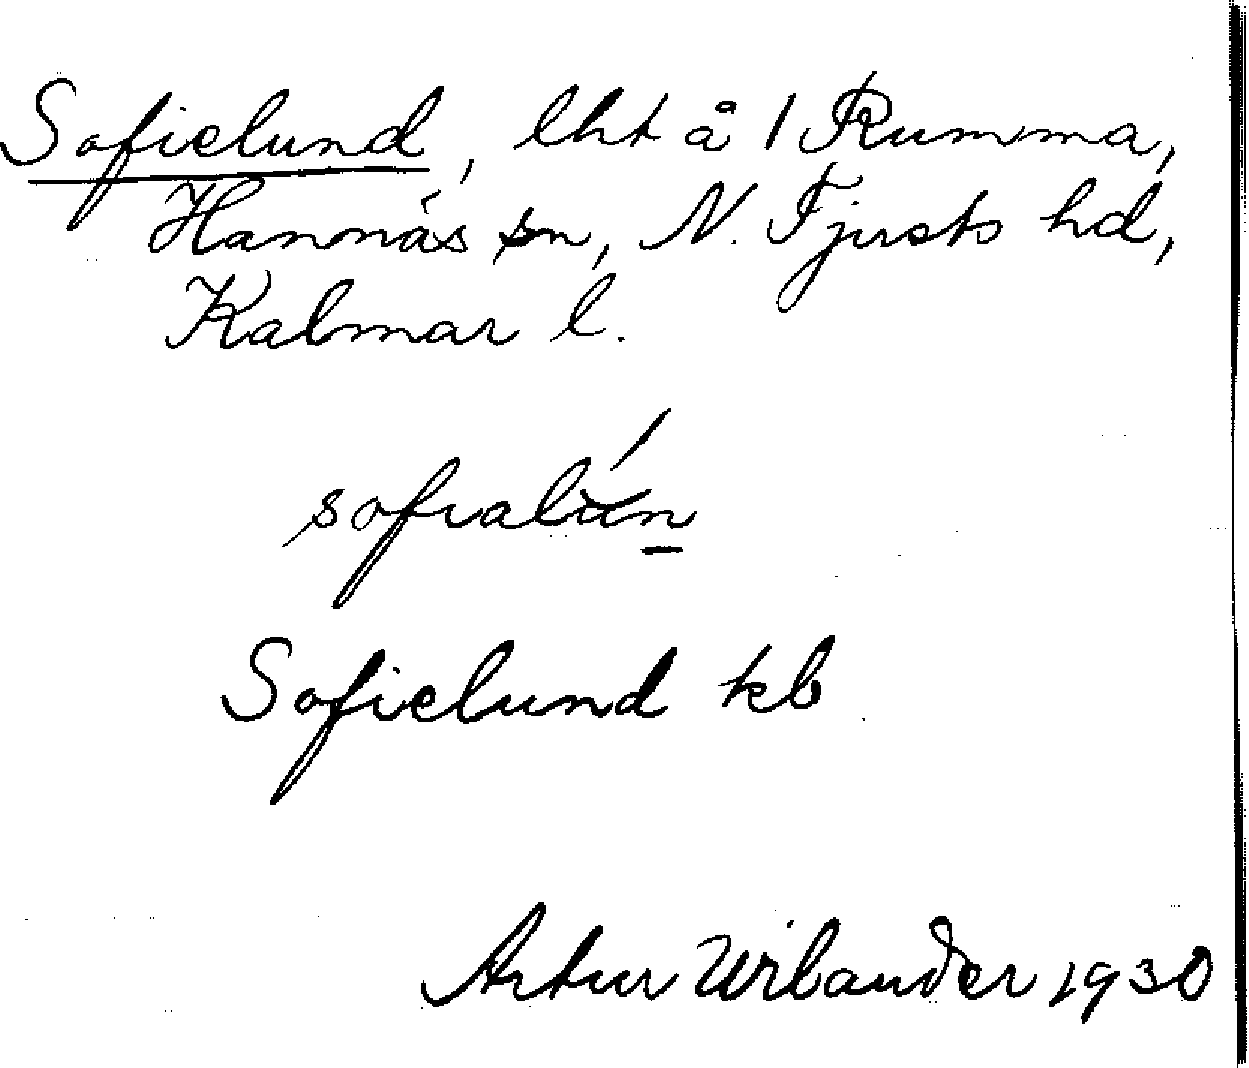 Sofielund, lht å 1 Rumma,
Hannäs sn, N. Tjusts hd,
Kalmar l.
sofialún
Sofielund kb
Artur Wilander 1930